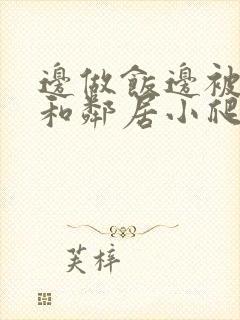 邊做飯邊被
和鄰居小爬
芙梓